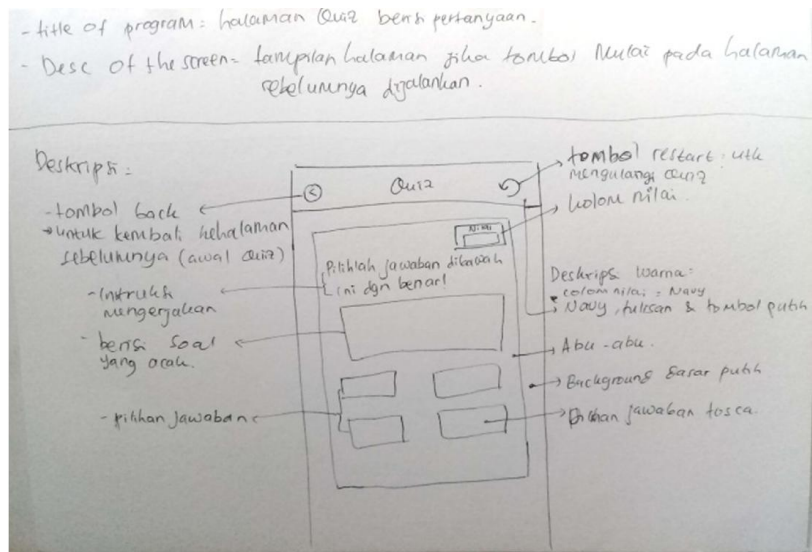 - title of program = halaman Quiz berisi pertanyaan.
- Desc of the screen = tampilan halaman jika tombol Mulai pada halaman
sebelumnya dijalankan.
Deskripsi =
- tombol back
untuk kembali kehalaman
sebelumnya (awal Quiz)
- Instruksi
mengerjakan
- berisi soal
yang acak.
- pilihan jawaban
Quiz
Nilai
Pilihlah jawaban dibawah
ini dgn benar!
tombol restart : utk
mengulangi Quiz
kolom nilai.
Deskripsi warna :
colom nilai = Navy
Navy, tulisan & tombol putih
Abu-abu.
Background dasar putih
Pilihan jawaban tosca.